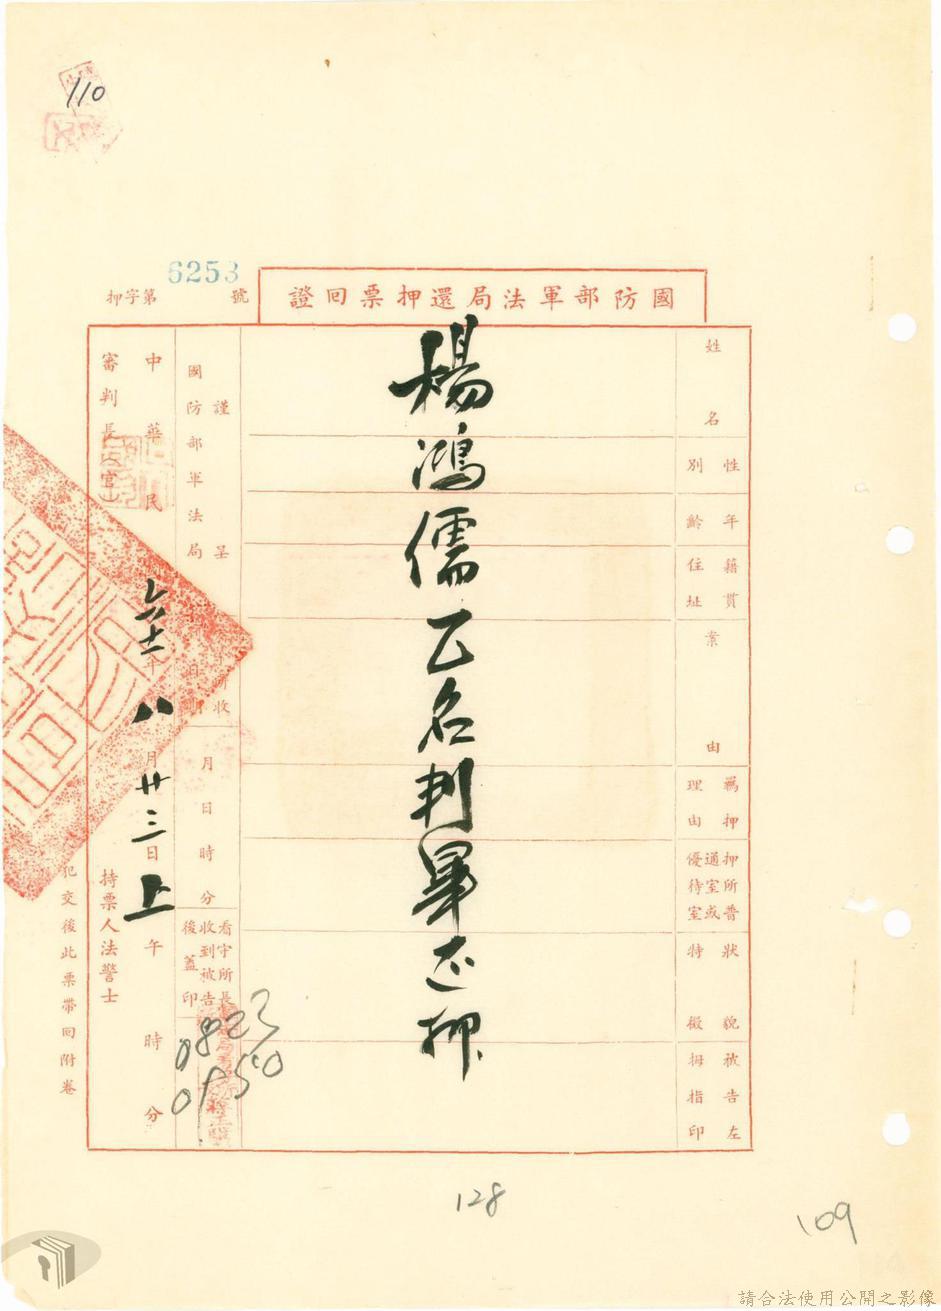 110
6253
押字第 號
國防部軍法局還押票回證
姓名
性別
年齡
籍貫
住址
案由
羈押理由
押所普通室或優待室
狀貌特徵
被告左拇指印
楊鴻儒乙名判畢還押
謹呈
國防部軍法局
月日時分
看守所長收到被告後蓋印
0823
0950
中華民 六十一年八月廿三日上午 時 分
審判長
持票人法警士
犯交後此票帶回附卷
128
109
請合法使用公開之影像